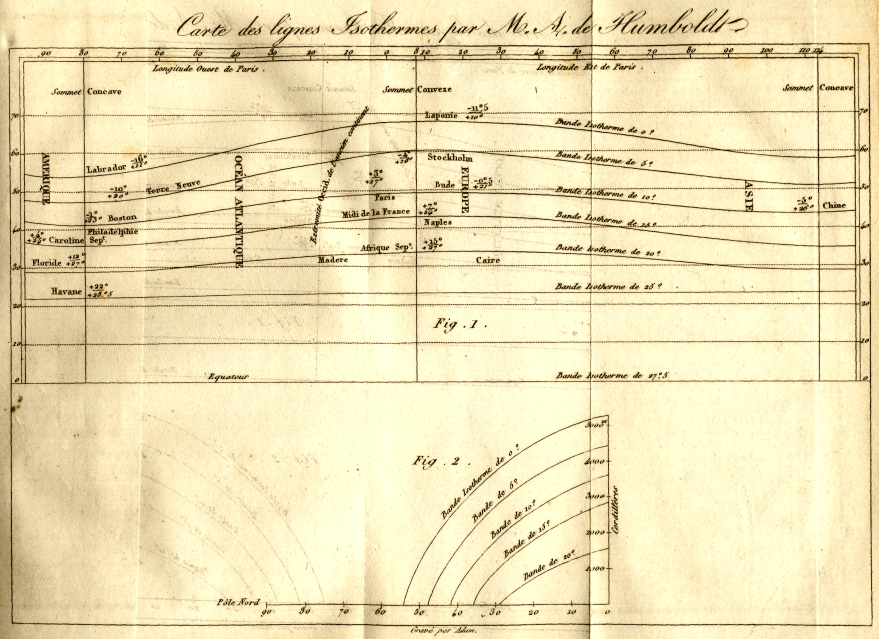 Carte des lignes Isothermes par M. A. de Humboldt
90 80 70 60 50 40 30 20 10 0 8 10 20 30 40 50 60 70 80 90 100 110 116
Longitude Ouest de Paris. Longitude Est de Paris.
Sommet Concave Sommet Convexe Sommet Concave
70 70
Laponie -11°5 +10°
Bande Isotherme de 0°
Extremité Occid. de l'ancien continent
60 60
AMERIQUE
Labrador
OCEAN ATLANTIQUE
Stockholm
Bande Isotherme de 5°
EUROPE
ASIE
-10° +20°
Terre Neuve
Bude
50 50
Paris
Bande Isotherme de 10°
Chine
Boston
Midi de la France
40 40
Philadelphie
Naples
Bande Isotherme de 15°
Caroline Sep.
Afrique Sep.
Bande Isotherme de 20°
Floride +12° +27°
Madere
Caire
30 30
Havane +22° +28°5
Bande Isotherme de 25°
20 20
Fig. 1.
10 10
0 Equateur Bande Isotherme de 27°5 0
Fig. 2.
Bande Isotherme de 0°
Bande de 5°
Bande de 10°
Bande de 15°
Bande de 20°
5000m
4000
3000
2000
1000
Cordillères
Pôle Nord
90 80 70 60 50 40 30 20 10 0
Gravé par Adam.